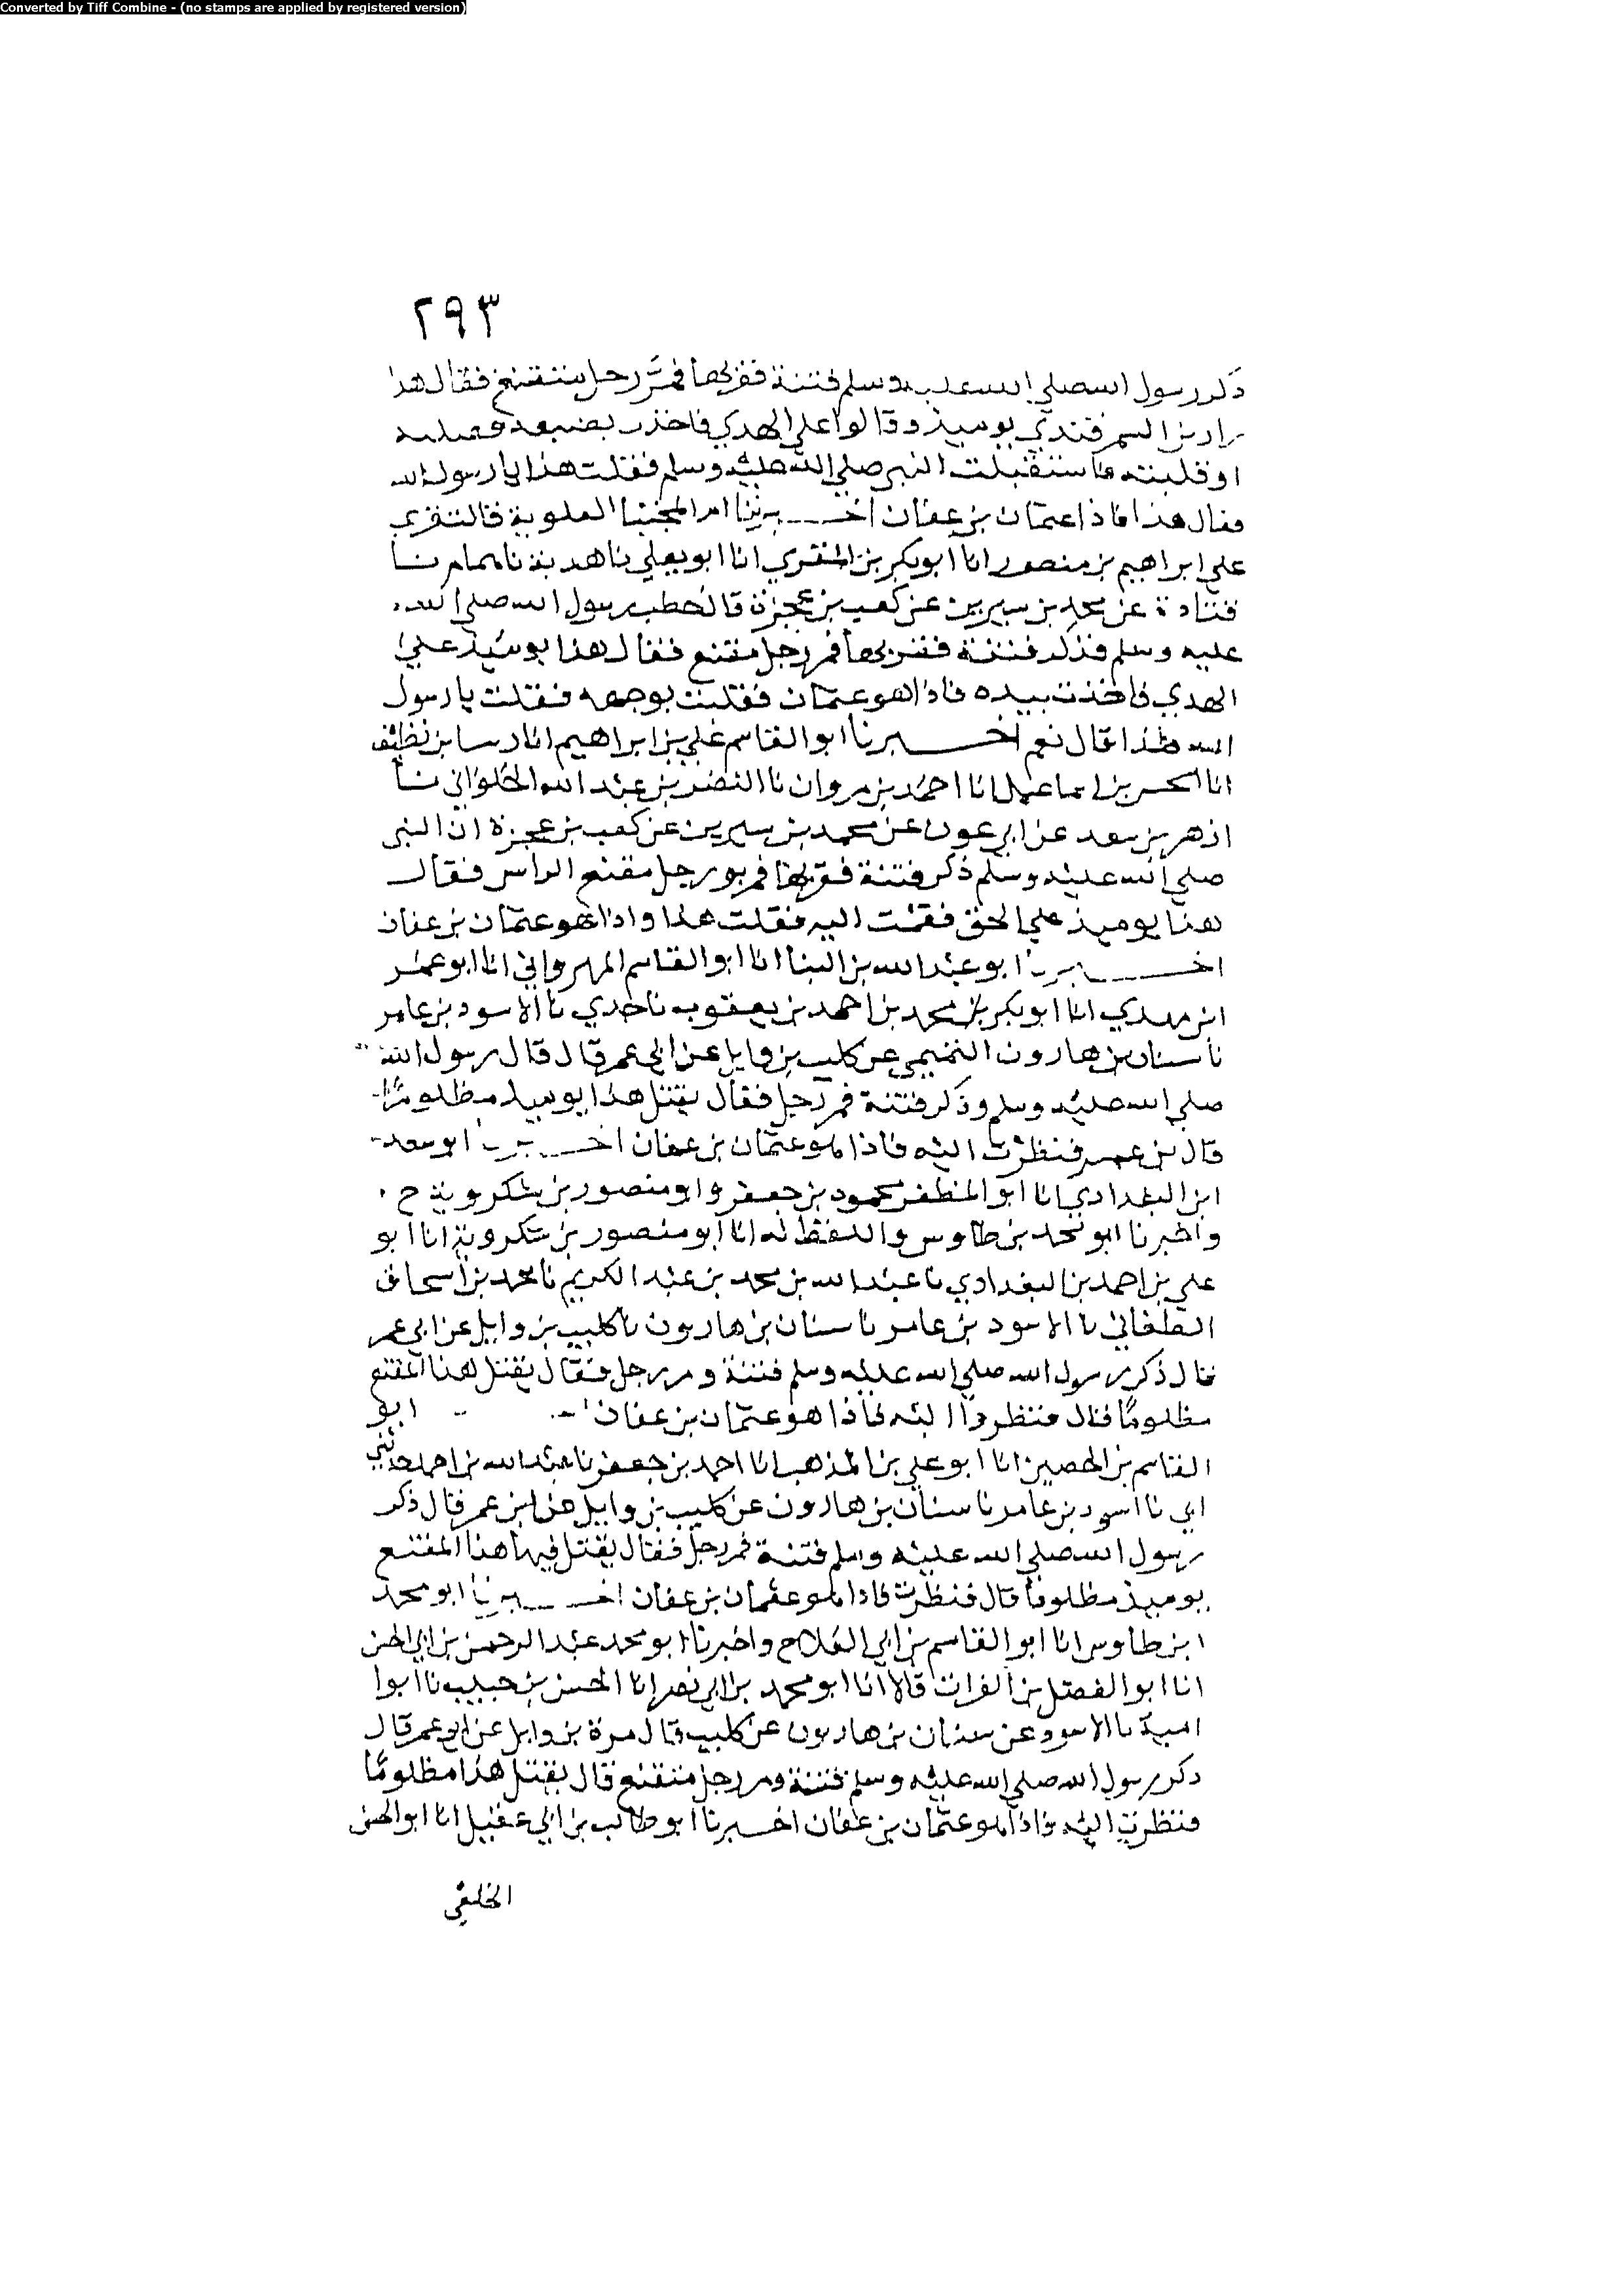 Converted by Tiff Combine - (no stamps are applied by registered version)
٢٩٣
ذكر رسول الله صلي الله عليه وسلم فتنة فقربها فمرَّ رجل متقنع فقال هذا
زاد بن السمرقندي يوميذ وقالوا علي الهدي فاخذت بضبعه
او قلبته فاستقبلت النبي صلي الله عليه وسلم فقلت هذا يا رسول الله
فقال هذا فاذا عثمان بن عفان اخـــبرتنا ام المجتبا العلوية قالت قري
علي ابراهيم بن منصور انا ابو بكر بن المقري انا ابو يعلي نا هدبة نا همام نـا
قتادة عن محمد بن سيرين عن كعب بن عجزة قال خطب رسول الله صلي الله
عليه وسلم فذكر فتنة فقربها فمر رجل مقنع فقال هذا يوميذ علي
الهدي فاخذت بيده فاذا هو عثمان فقلبت بوجهه فقلت يا رسول
الله هذا قال نعم اخـــبرنا ابو القاسم علي بن ابراهيم انا رسا بن نظيف
انا الحسن بن اسماعيل انا احمد بن مروان نا النضر بن عبد الله الحلواني نـا
ازهر بن سعد عن ابن عون عن محمد بن سيرين عن كعب بن عجزة ان النبي
صلي الله عليه وسلم ذكر فتنة فقربها فمر بو رجل مقنع الراس فقال
هذا يوميذ علي الحق فقمت اليه فقلت هذا واذا هو عثمان بن عفان
اخـــبرنا ابو عبد الله بن البنا انا ابو القاسم المهرواني انا ابو عمر
ابن مهدي انا ابو بكر بن محمد بن احمد بن يعقوب نا جدي نا الاسود بن عامر
نا سنان بن هارون التميمي عن كليب بن وايل عن ابن عمر قال قال رسول الله
صلي الله عليه وسلم وذكر فتنة فمر رجل فقال يقتل هذا يوميذ مظلومًا
قال بن عمر فنظرت اليه فاذا هو عثمان بن عفان اخـــبرنا ابو سعد
ابن البغدادي انا ابو المظفر محمود بن جعفر وابو منصور بن شكرويه ح
واخبرنا ابو محمد بن طاوس واللفظ له انا ابو منصور بن شكرويه انا ابو
علي بن احمد بن البغدادي نا عبد الله بن محمد بن عبد الكريم نا محمد بن اسحاق
الطلقاني نا الاسود بن عامر نا سنان بن هارون نا كليب بن وايل عن ابن عمر
قال ذكر رسول الله صلي الله عليه وسلم فتنة ومر رجل فقال يقتل هذا المقنع
مظلومًا قال فنظروا اليه فاذا هو عثمان بن عفان ابو
القاسم بن الحصين انا ابو علي بن المذهب انا احمد بن جعفر نا عبد الله بن احمد حدثني
ابي نا اسود بن عامر نا سنان بن هارون عن كليب بن وايل عن ابن عمر قال ذكر
رسول الله صلي الله عليه وسلم فتنة فمر رجل فقال يقتل فيها هذا المقنع
يوميذ مظلوما قال فنظرت فاذا هو عثمان بن عفان اخـــبرنا ابو محمد
ابن طاوس انا ابو القاسم بن ابي العلاح واخبرنا ابو محمد عبد الرحمن بن ابي الحسن
انا ابو الفضل بن الفرات قالا انا ابو محمد بن ابي نصر انا الحسن بن حبيب نا ابوا
امية نا الاسود عن سنان بن هارون عن كليب قال مرة بن وايل عن ابن عمر قال
ذكر رسول الله صلي الله عليه وسلم فتنة ومر رجل متقنع قال يقتل هذا مظلومًا
فنظرت اليه فاذا هو عثمان بن عفان اخـــبرنا ابو طالب بن ابي عقيل انا ابو الحسن
الخلعي